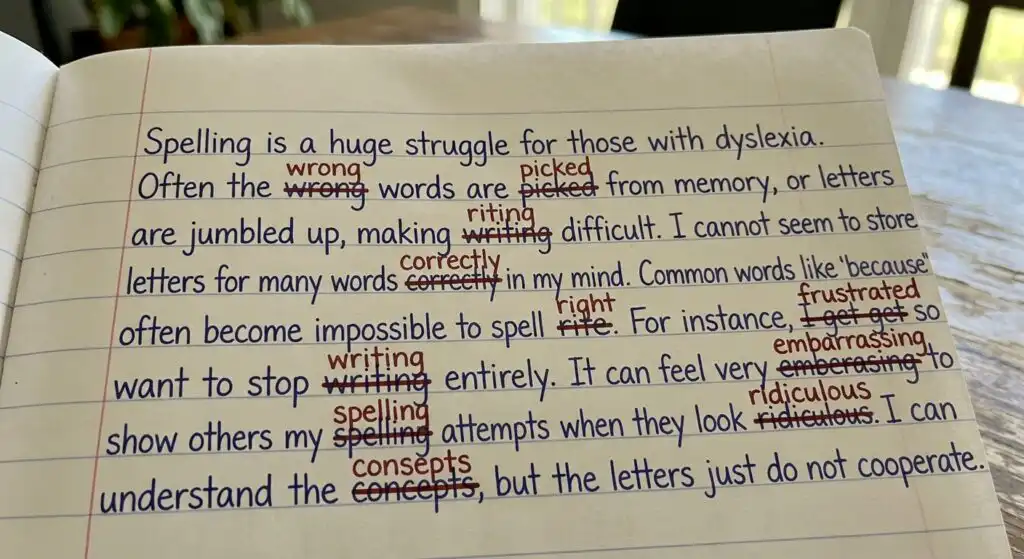 Spelling is a huge struggle for those with dyslexia.
wrong picked
Often the wrong words are picked from memory, or letters
riting
are jumbled up, making writing difficult. I cannot seem to store
correctly
letters for many words correctly in my mind. Common words like 'because"
right frustrated
often become impossible to spell rite. For instance, I get get so
writing embarrassing
want to stop writing entirely. It can feel very emberasing to
spelling ridiculous
show others my spelling attempts when they look ridiculous. I can
consepts
understand the concepts, but the letters just do not cooperate.